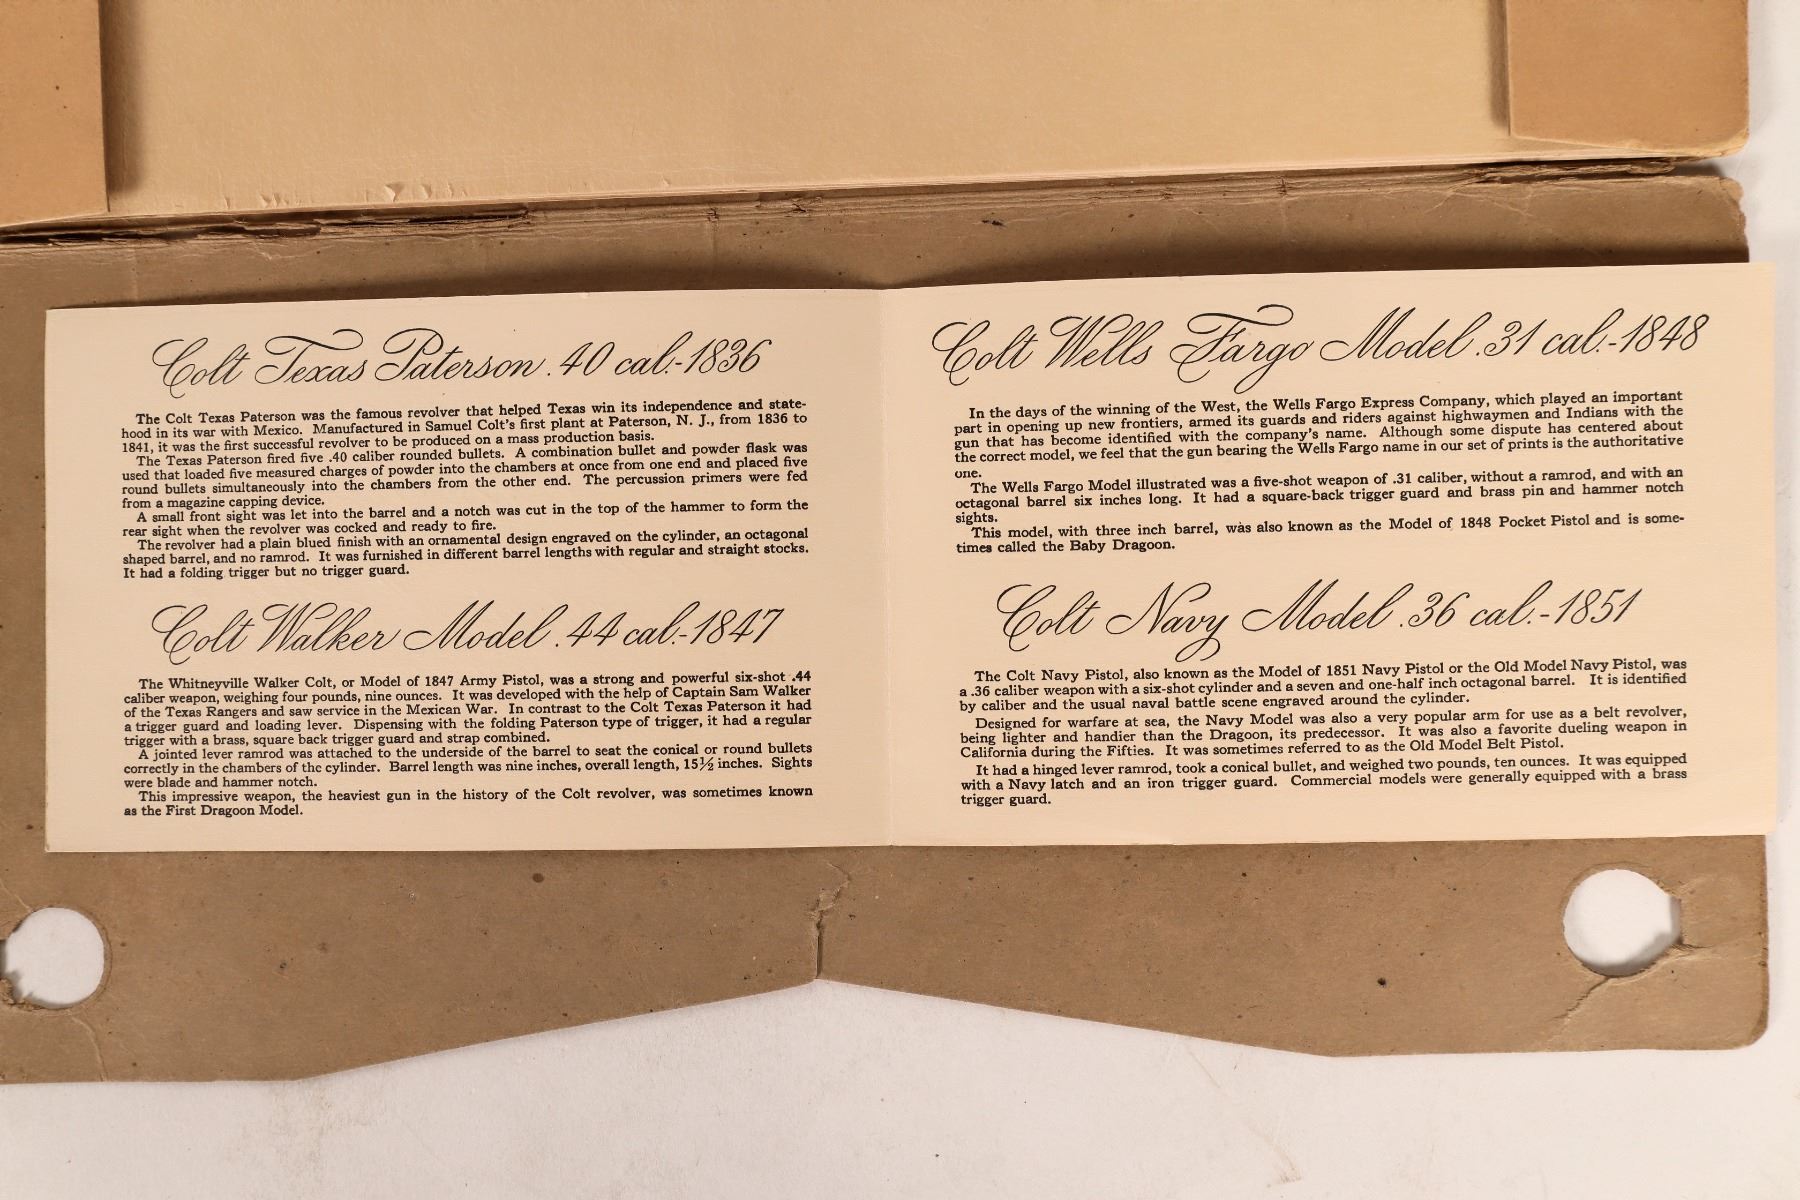 Colt Texas Paterson .40 cal.-1836
The Colt Texas Paterson was the famous revolver that helped Texas win its independence and state-
hood in its war with Mexico. Manufactured in Samuel Colt's first plant at Paterson, N. J., from 1836 to
1841, it was the first successful revolver to be produced on a mass production basis.
The Texas Paterson fired five .40 caliber rounded bullets. A combination bullet and powder flask was
used that loaded five measured charges of powder into the chambers at once from one end and placed five
round bullets simultaneously into the chambers from the other end. The percussion primers were fed
from a magazine capping device.
A small front sight was let into the barrel and a notch was cut in the top of the hammer to form the
rear sight when the revolver was cocked and ready to fire.
The revolver had a plain blued finish with an ornamental design engraved on the cylinder, an octagonal
shaped barrel, and no ramrod. It was furnished in different barrel lengths with regular and straight stocks.
It had a folding trigger but no trigger guard.
Colt Walker Model .44 cal.-1847
The Whitneyville Walker Colt, or Model of 1847 Army Pistol, was a strong and powerful six-shot .44
caliber weapon, weighing four pounds, nine ounces. It was developed with the help of Captain Sam Walker
of the Texas Rangers and saw service in the Mexican War. In contrast to the Colt Texas Paterson it had
a trigger guard and loading lever. Dispensing with the folding Paterson type of trigger, it had a regular
trigger with a brass, square back trigger guard and strap combined.
A jointed lever ramrod was attached to the underside of the barrel to seat the conical or round bullets
correctly in the chambers of the cylinder. Barrel length was nine inches, overall length, 15½ inches. Sights
were blade and hammer notch.
This impressive weapon, the heaviest gun in the history of the Colt revolver, was sometimes known
as the First Dragoon Model.
Colt Wells Fargo Model .31 cal.-1848
In the days of the winning of the West, the Wells Fargo Express Company, which played an important
part in opening up new frontiers, armed its guards and riders against highwaymen and Indians with the
gun that has become identified with the company's name. Although some dispute has centered about
the correct model, we feel that the gun bearing the Wells Fargo name in our set of prints is the authoritative
one.
The Wells Fargo Model illustrated was a five-shot weapon of .31 caliber, without a ramrod, and with an
octagonal barrel six inches long. It had a square-back trigger guard and brass pin and hammer notch
sights.
This model, with three inch barrel, was also known as the Model of 1848 Pocket Pistol and is some-
times called the Baby Dragoon.
Colt Navy Model .36 cal.-1851
The Colt Navy Pistol, also known as the Model of 1851 Navy Pistol or the Old Model Navy Pistol, was
a .36 caliber weapon with a six-shot cylinder and a seven and one-half inch octagonal barrel. It is identified
by caliber and the usual naval battle scene engraved around the cylinder.
Designed for warfare at sea, the Navy Model was also a very popular arm for use as a belt revolver,
being lighter and handier than the Dragoon, its predecessor. It was also a favorite dueling weapon in
California during the Fifties. It was sometimes referred to as the Old Model Belt Pistol.
It had a hinged lever ramrod, took a conical bullet, and weighed two pounds, ten ounces. It was equipped
with a Navy latch and an iron trigger guard. Commercial models were generally equipped with a brass
trigger guard.